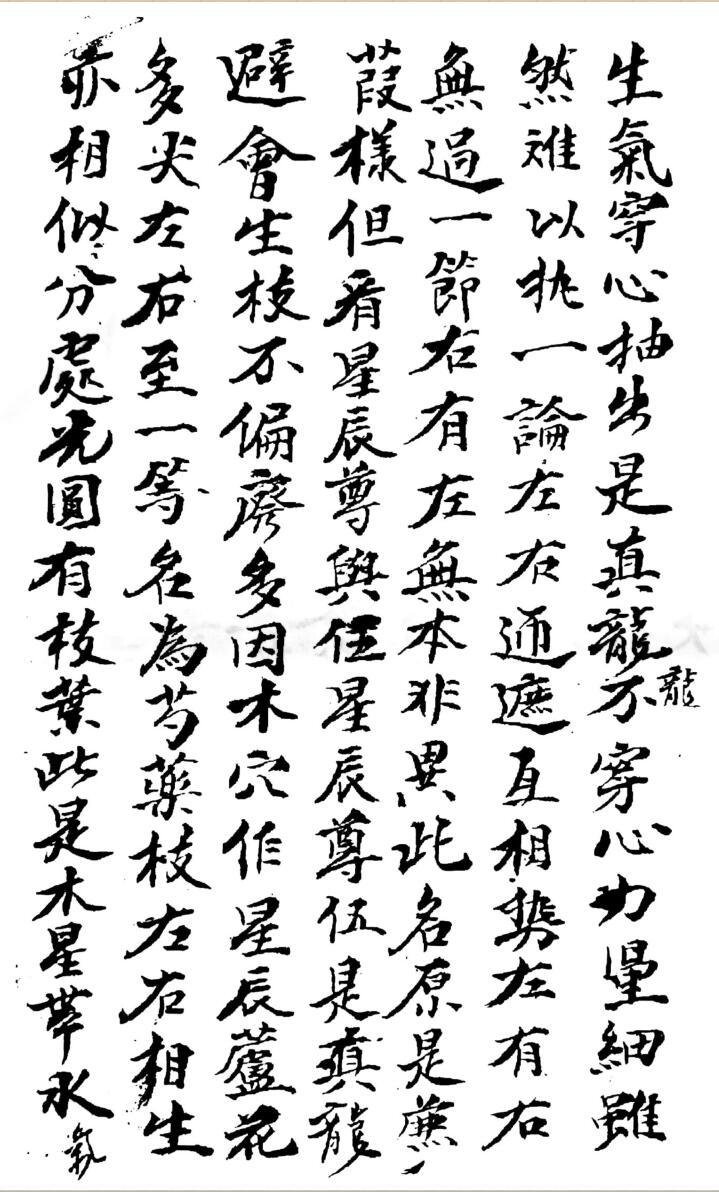 生氣穿心抽出是真龍龍不穿心力量細雖
然难以执一論左右通遮互相勢左有右
無過一節右有左無本非異此名原是蒹
葭樣但看星辰尊與伍星辰尊伍是真龍
避會生枝不偏廢多因木穴作星辰蘆花
多尖左右至一等名為芍藥枝左右相生
亦相似分處光圓有枝葉此是木星帶水
氣